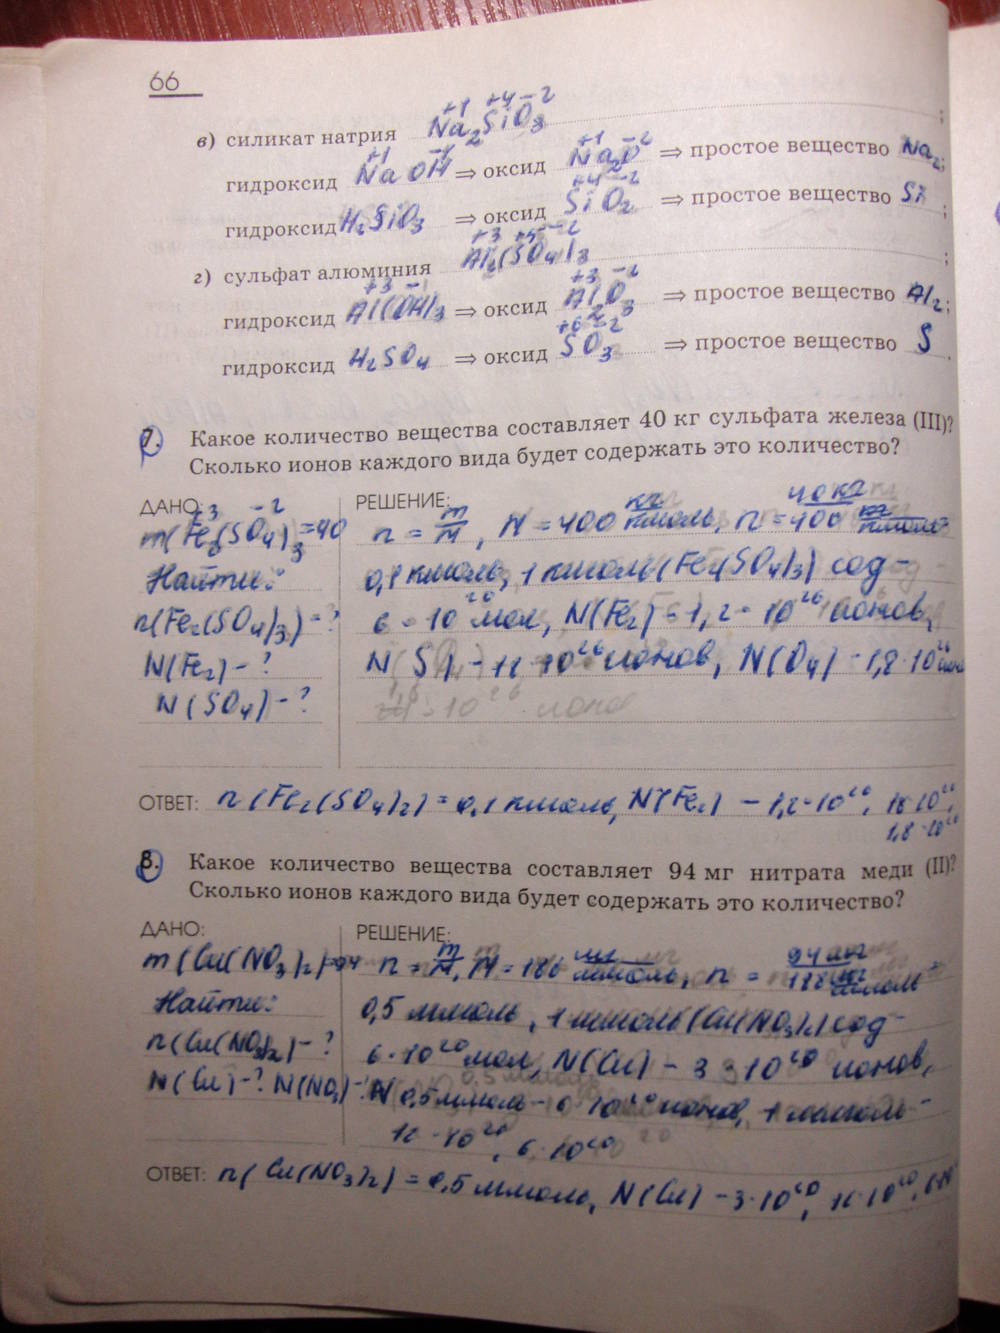 66
в) силикат натрия Na₂SiO₃ +1 +4 -2 ;
гидроксид NaOH ⇒ оксид Na₂O ⇒ простое вещество Na₂;
гидроксид H₂SiO₃ ⇒ оксид SiO₂ ⇒ простое вещество Si ;
г) сульфат алюминия Al₂(SO₄)₃ ;
гидроксид Al(OH)₃ ⇒ оксид Al₂O₃ ⇒ простое вещество Al₂;
гидроксид H₂SO₄ ⇒ оксид SO₃ ⇒ простое вещество S .
7. Какое количество вещества составляет 40 кг сульфата железа (III)?
Сколько ионов каждого вида будет содержать это количество?
ДАНО: РЕШЕНИЕ:
m(Fe₂(SO₄)₃=40 n = m/M, M = 400 кг/кмоль, n = 40 кг/400 кг/кмоль
Найти: 0,1 кмоль, 1 кмоль(Fe₂(SO₄)₃) сод-
n(Fe₂(SO₄)₃)-? 6 · 10²⁶ мол, N(Fe₂) - 1,2 · 10²⁶ ионов,
N(Fe₂) - ? N S) - · 10²⁶ ионов, N(O₄) - 1,8 · 10²⁶
N(SO₄) - ?
ОТВЕТ: n(Fe₂(SO₄)₂) = 0,1 кмоль, N(Fe₂) - 1,2 · 10²⁶,
1,8 · 10²⁶
8. Какое количество вещества составляет 94 мг нитрата меди (II)?
Сколько ионов каждого вида будет содержать это количество?
ДАНО: РЕШЕНИЕ:
m(Cu(NO₃)₂)=94 n = m/M, M = 188 мг/ммоль, n = 94 мг/188 мг/ммоль =
Найти: 0,5 ммоль, 1 ммоль(Cu(NO₃)₂) сод-
n(Cu(NO₃)₂) - ? 6 · 10²⁰ мол, N(Cu) - 3 · 10²⁰ ионов,
N(Cu) - ? N(NO₃) - ? N 0,5 ммоль - 6 · 10²⁰ ионов, 1 ммоль -
· 10²⁰, 6 · 10²⁰
ОТВЕТ: n(Cu(NO₃)₂) = 0,5 ммоль, N(Cu) - 3 · 10²⁰,